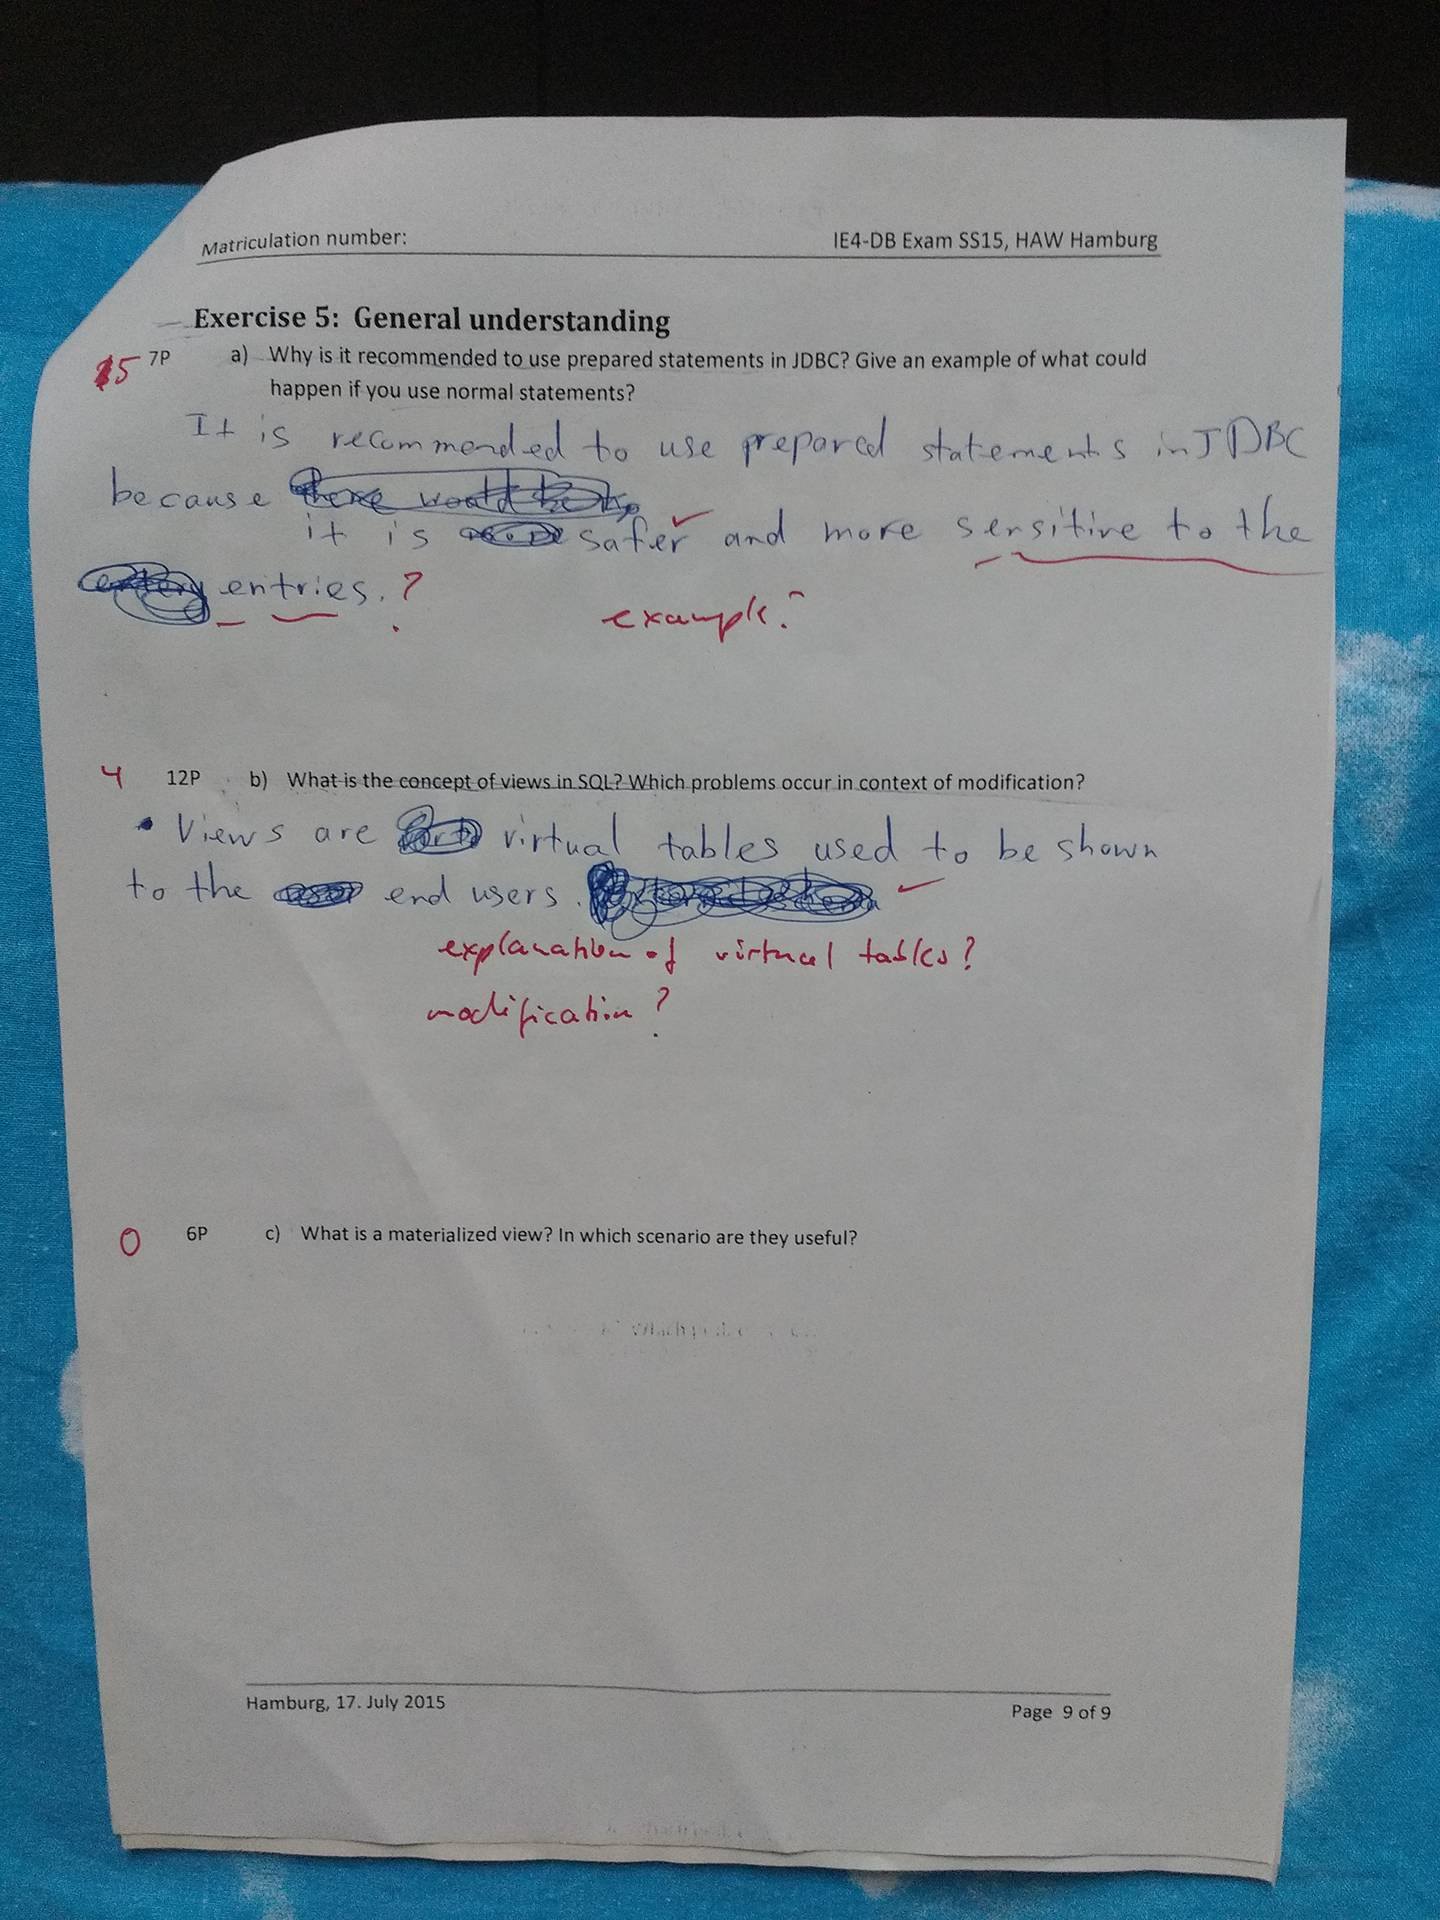 Matriculation number: IE4-DB Exam SS15, HAW Hamburg
Exercise 5: General understanding
5 7P a) Why is it recommended to use prepared statements in JDBC? Give an example of what could
happen if you use normal statements?
It is recommended to use prepared statements in JDBC
because
it is safer and more sensitive to the
entries. ?
example?
4 12P b) What is the concept of views in SQL? Which problems occur in context of modification?
• Views are virtual tables used to be shown
to the end users.
explanation of virtual tables?
modification?
0 6P c) What is a materialized view? In which scenario are they useful?
Hamburg, 17. July 2015 Page 9 of 9